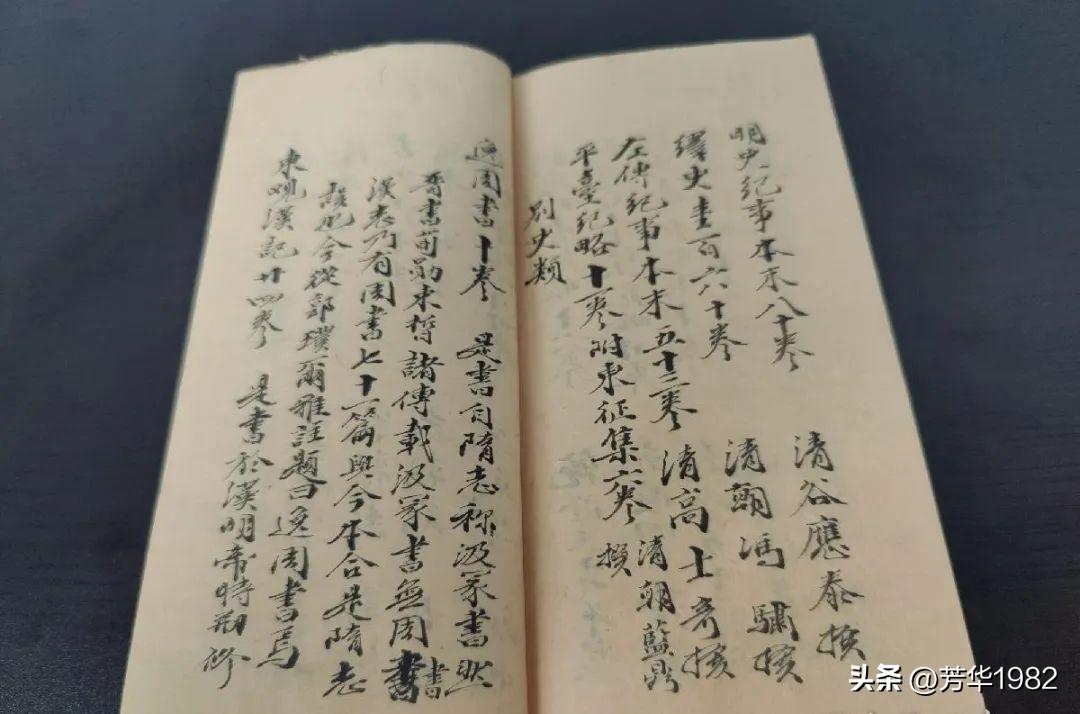 明史紀事本末八十卷 清谷應泰撰
繹史壹百六十卷 清朝馮驌撰
左傳紀事本末五十三卷 清高士奇撰
平臺紀略十一卷附東征集六卷 清朝藍鼎撰
別史類
逸周書十卷 是書自隋志稱汲冢書然
晉書荀勗束晳諸傳載汲冢書無周書書
漢志乃有周書七十一篇與今本合是隋志
誤也今從郭璞爾雅註題曰逸周書焉
東觀漢記廿四卷 是書於漢明帝時刱修
头条 @芳华1982